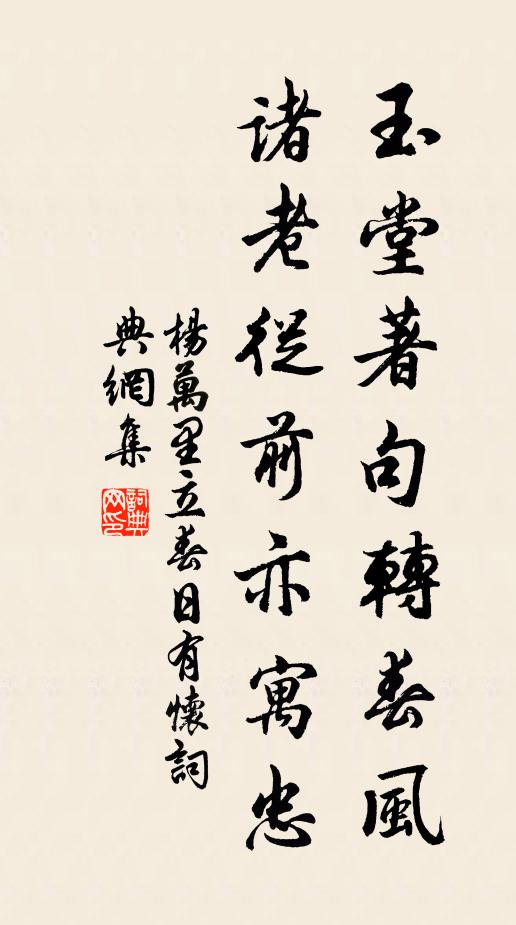 玉堂著句轉春風
諸老從前亦寓忠
楊萬里立春日有懷詞
典網集
詞典
网印